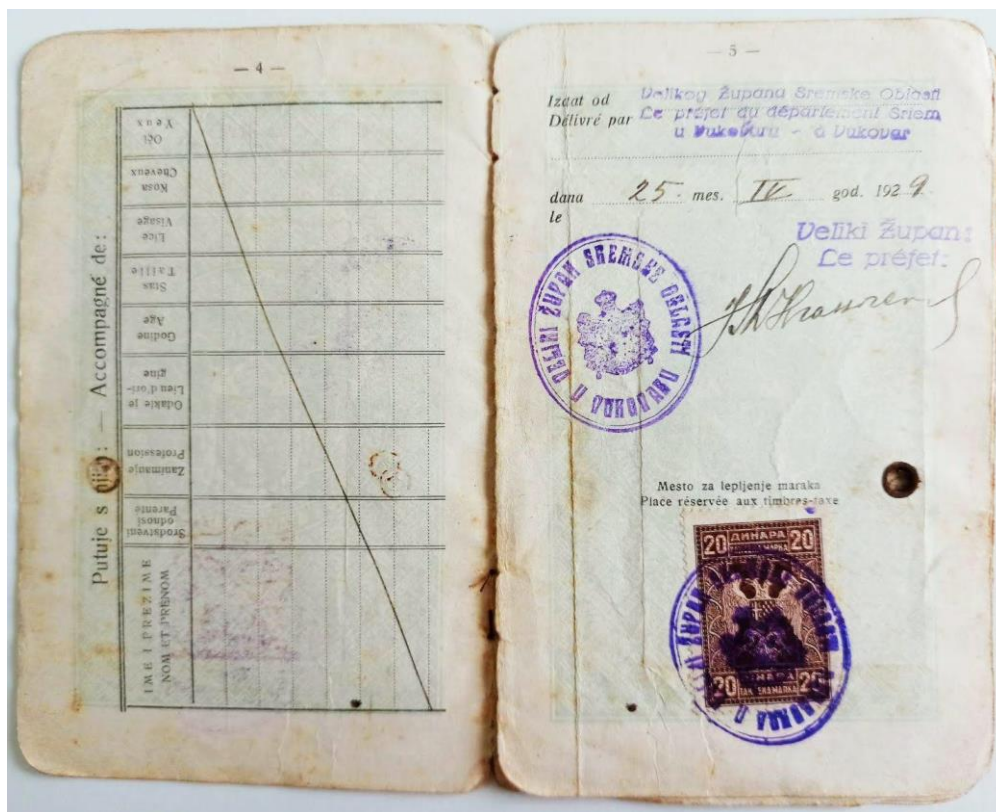 — 4 —
Putuje s njim: — Accompagné de:
IME I PREZIME
NOM ET PRÉNOM
Srodstveni
odnosi
Parenté
Zanimanje
Profession
Odakle je
Lieu d'ori-
gine
Godine
Age
Stas
Taille
Lice
Visage
Kosa
Cheveux
Oči
Yeux
— 5 —
Izdat od Velikog Župana Sremske Oblasti
Délivré par Le préfet du département Sriem
u Vukovaru - à Vukovar
dana 25. mes. IV. god. 1929.
le
Veliki Župan:
Le préfet:
VELIKI ŽUPAN SREMSKE OBLASTI
Mesto za lepljenje maraka
Place réservée aux timbres-taxe
20 ДИНАРА 20
20 DINARA 20
TAKSENA MARKA